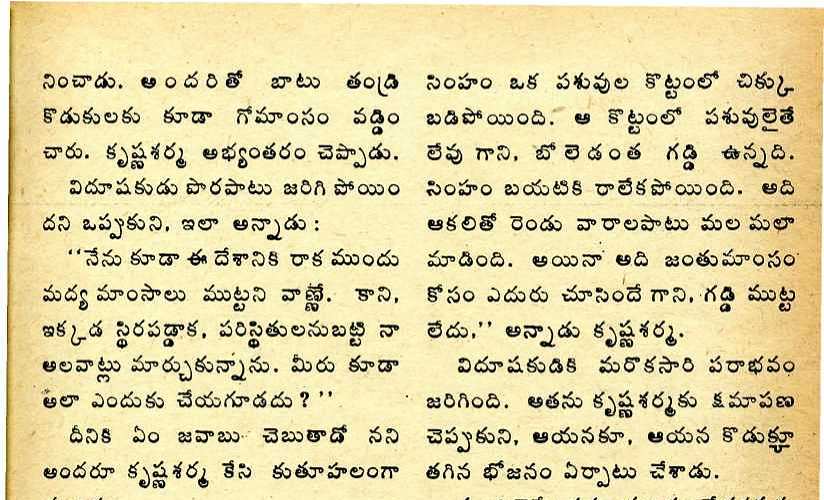 నించాడు. అందరితో బాటు తండ్రి
కొడుకులకు కూడా గోమాంసం వడ్డిం
చారు. కృష్ణశర్మ అభ్యంతరం చెప్పాడు.
విదూషకుడు పొరపాటు జరిగి పోయిం
దని ఒప్పుకుని, ఇలా అన్నాడు :
‘‘నేను కూడా ఈ దేశానికి రాక ముందు
మద్య మాంసాలు ముట్టని వాణ్ణే. కాని,
ఇక్కడ స్థిరపడ్డాక, పరిస్థితులనుబట్టి నా
అలవాట్లు మార్చుకున్నాను. మీరు కూడా
అలా ఎందుకు చేయగూడదు ? ’’
దీనికి ఏం జవాబు చెబుతాడో నని
అందరూ కృష్ణశర్మ కేసి కుతూహలంగా
సింహం ఒక పశువుల కొట్టంలో చిక్కు
బడిపోయింది. ఆ కొట్టంలో పశువులైతే
లేవు గాని, బోలెడంత గడ్డి ఉన్నది.
సింహం బయటికి రాలేకపోయింది. అది
ఆకలితో రెండు వారాలపాటు మల మలా
మాడింది. అయినా అది జంతుమాంసం
కోసం ఎదురు చూసిందే గాని, గడ్డి ముట్ట
లేదు,’’ అన్నాడు కృష్ణశర్మ.
విదూషకుడికి మరొకసారి పరాభవం
జరిగింది. అతను కృష్ణశర్మకు క్షమాపణ
చెప్పుకుని, ఆయనకూ, ఆయన కొడుక్కూ
తగిన భోజనం ఏర్పాటు చేశాడు.